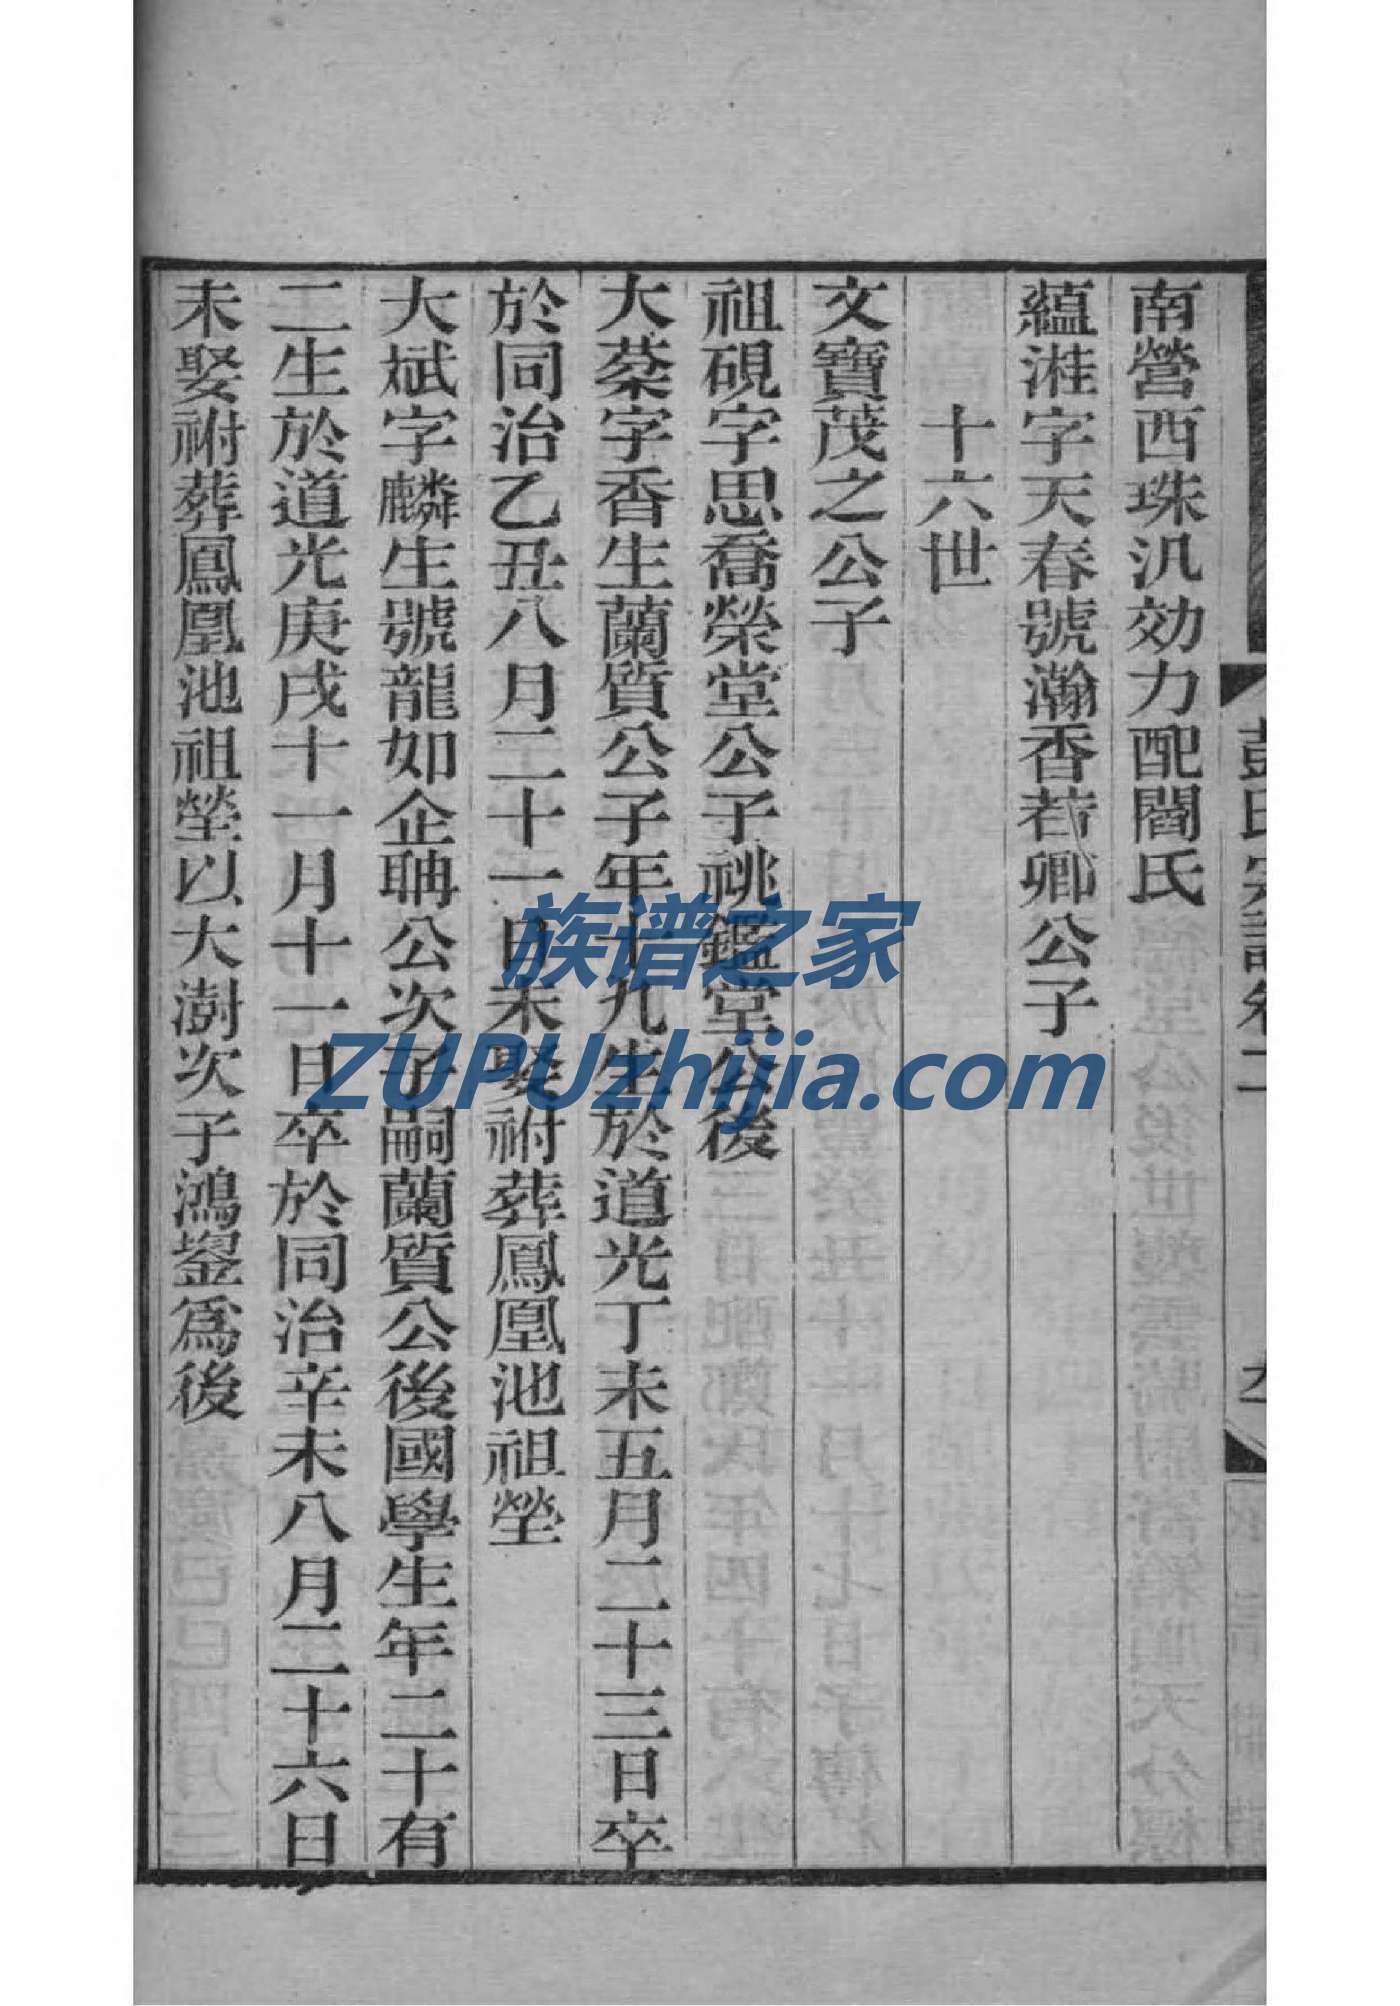 彭氏宗譜卷二
南營西珠汛効力配閻氏
蘊溎字天春號瀚香若卿公子
十六世
文寶茂之公子
祖硯字思喬榮堂公子祧鑑堂公後
大棻字香生蘭質公子年十九生於道光丁未五月二十三日卒
於同治乙丑八月二十一日未娶祔葬鳳凰池祖塋
大斌字麟生號龍如企聃公次子嗣蘭質公後國學生年二十有
二生於道光庚戌十一月十一日卒於同治辛未八月二十六日
未娶祔葬鳳凰池祖塋以大澍次子鴻鋆為後
族谱之家
ZUPUzhijia.com